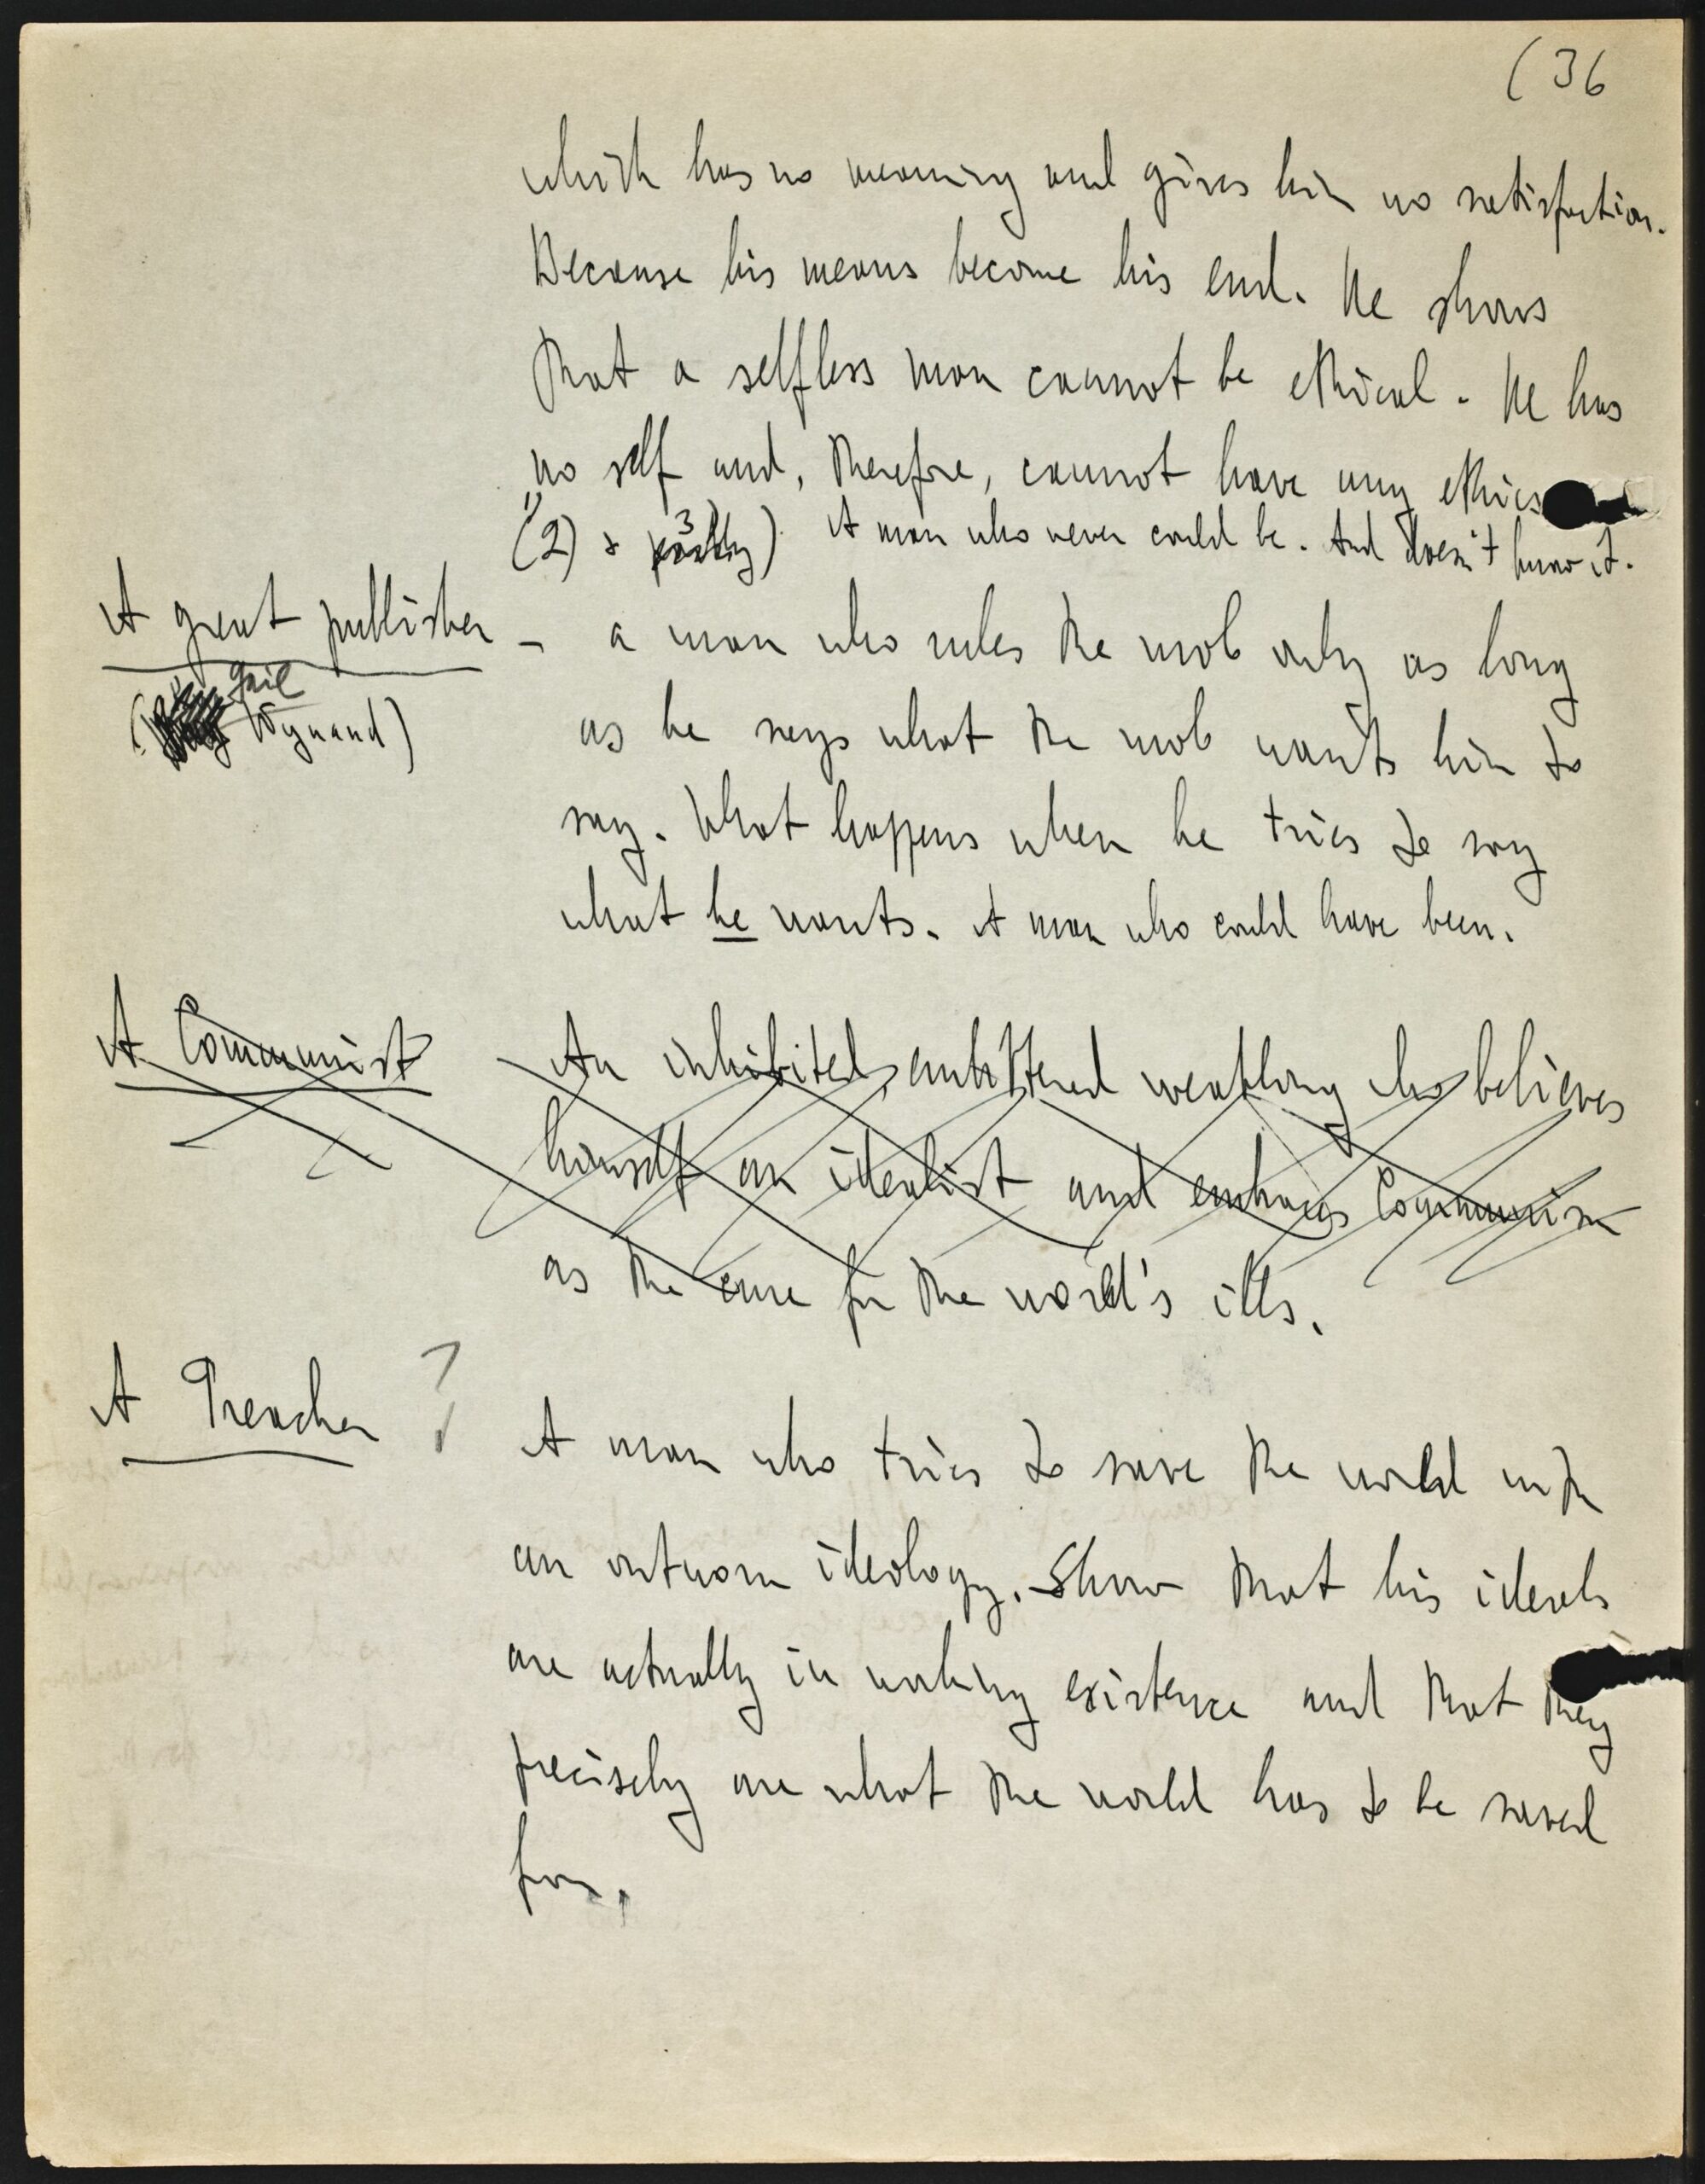 (36
which has no meaning and gives him no satisfaction.
Because his means become his end. He shows
that a selfless man cannot be ethical. He has
no self and, therefore, cannot have any ethics
(2) & 3) A man who never could be. And doesn't know it.
A great publisher – a man who rules the mob only as long
Gail
Wynand)
as he says what the mob wants him to
say. What happens when he tries to say
what he wants. A man who could have been.
A Communist An inhibited, embittered weakling who believes
himself an idealist and embraces Communism
as the cure for the world's ills.
A Preacher ? A man who tries to save the world with
an outworn ideology. Show that his ideals
are actually in working existence and that they
precisely are what the world has to be saved
from.